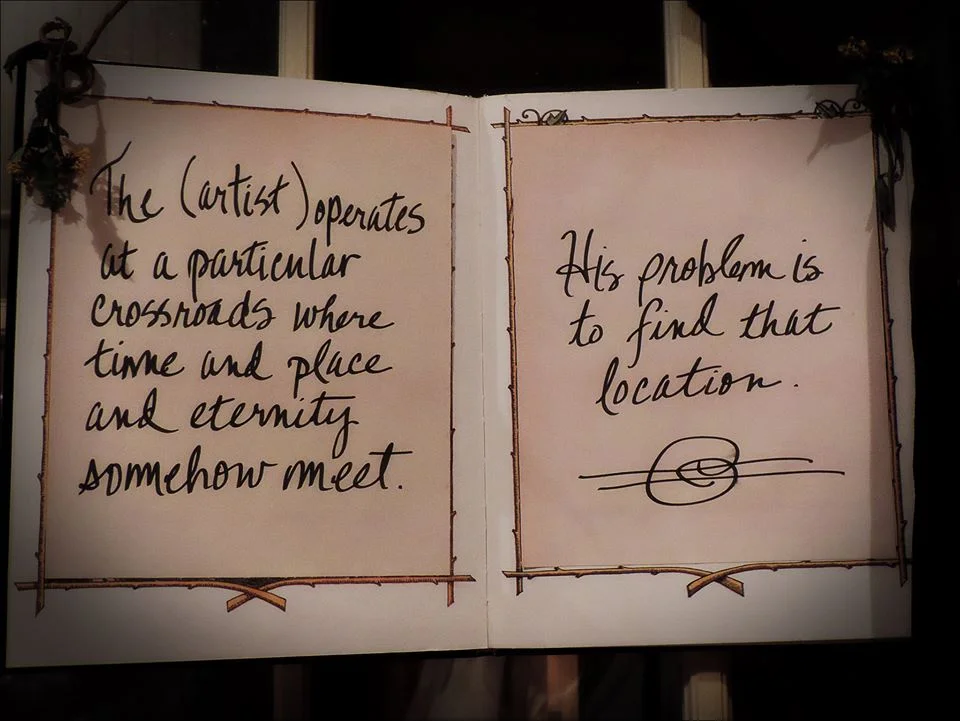 The (artist) operates
at a particular
crossroads where
time and place
and eternity
somehow meet.
His problem is
to find that
location.